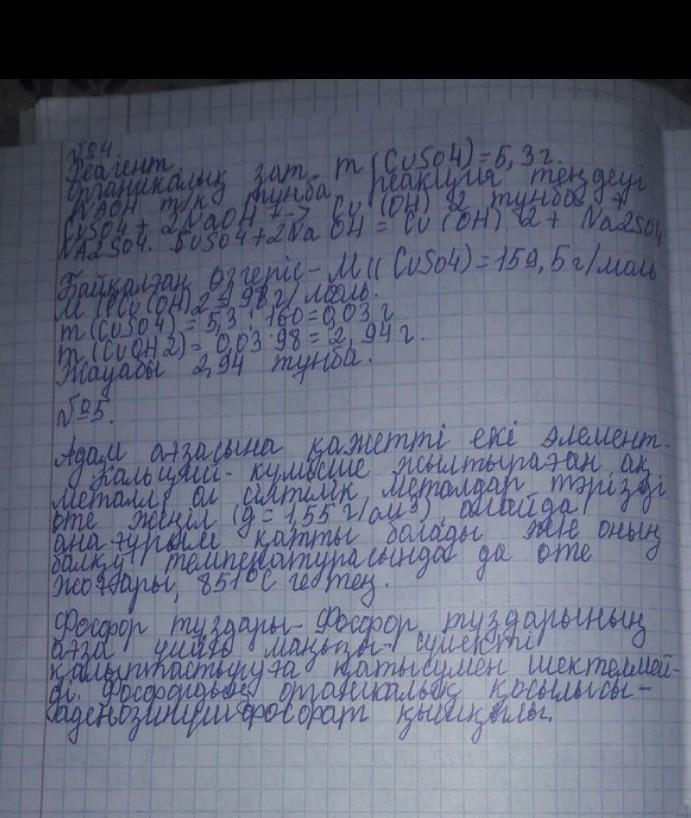 №4.
Реагент
Органикалық зат m (CuSO4)=5,3г.
NAOH т/к тұнба реакция теңдеуі
CuSO4 + 2NaOH --> Cu (OH) 2 тұнба +
NA2SO4. CuSO4+2Na OH = Cu (OH) 2 + Na2SO4
Байқалған өзгеріс - M(( CuSO4) = 159,5 г/моль
M (Cu(OH)2 = 98 г/моль.
m (CuSO4) = 5,3 : 160 = 0,03 г
m (CuOH2) = 0,03·98 = 2,94 г.
Жауабы 2,94 тұнба.
№5.
Адам ағзасына қажетті екі элемент-
Кальций- күмісше жылтыраған ақ
металл ол сілтілік металдар тәрізді
өте жеңіл (g = 1,55 г/см3), алайда
анағұрлым қатты болады және оның
балқу температурасында да өте
жоғары, 851°C ге тең.
Фосфор тұздары- Фосфор тұздарының
ағза үшін маңызы- сүйекті
қалыптастыруға қатысумен шектелмей-
ді. Фосфордың органикалық қосылысы-
аденозинүшфосфорат қышқылы.